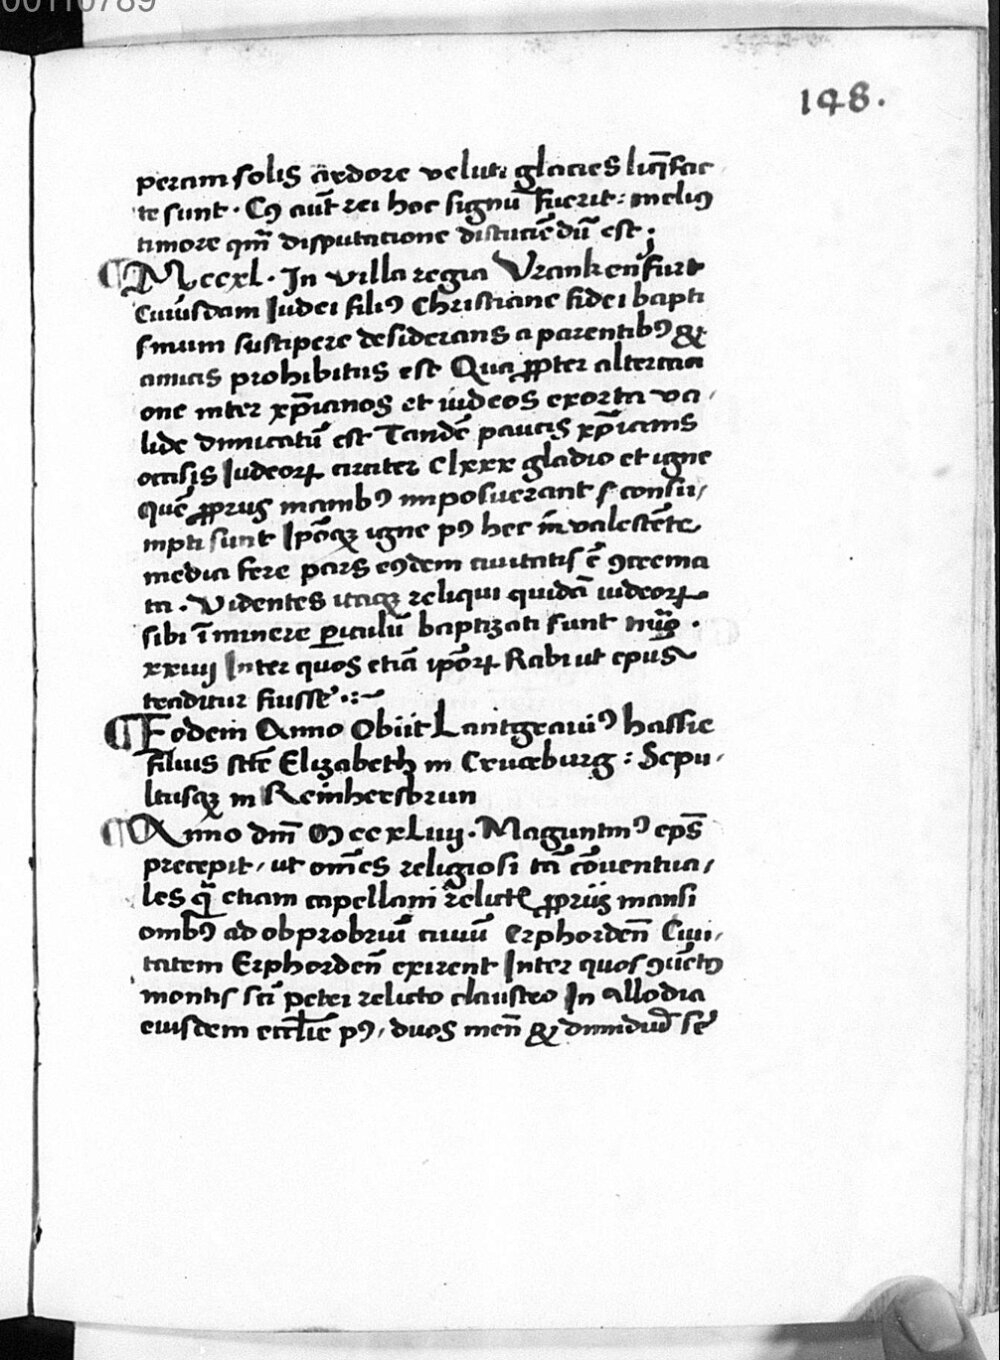 00110789
148.
peram solis ardore velut glacies liq̄fac
te sunt. Cꝰ aut̄ rei hoc signū fuerit: meliꝰ
timore qm̄ disputacione discuciēdū est.
Mccxl. In villa regia Vrankenfurt
Cuiusdam Iudei filiꝰ Christiane fidei bapti
smum suscipere desiderans a parentibꝰ &
amicis prohibitus est Qua ꝓpter altercaci
one inter xp̄ianos et iudeos exorta va
lide dimicatū est Tandē paucis xp̄ianis
occisis Iudeoꝝ circiter Clxxx gladio et igne
quē ꝓprijs manibꝰ imposuerant s consu
mpti sunt Ipōqꝫ igne pꝰ hec in valescēte
media fere pars eꝰdem ciuitatis ē ꝯcrema
ta. Videntes itaqꝫ reliqui quidā iudeoꝝ
sibi īminere ꝑiculū baptizati sunt nūo.
xxiiij Inter quos etiā ipōꝝ Rabi ut epus
traditur fuisse.
Eodem Anno Obijt Lantgrauiꝰ hassie
filius scē Elizabeth in Cruceburg: Sepu
ltusqꝫ in Reinhersbrun
Anno dn̄i Mccxliiij. Maguntinꝰ ep̄s
precepit, ut om̄es religiosi tā cōuentua
les q̄ etiam capellani relictis ꝓprijs mansi
onibꝰ ad obprobriū ciuiū Erphorden̄ Ciui
tatem Erphorden̄ exirent Inter quos ꝯuētꝰ
montis sc̄i petri relicto claustro In allodia
eiusdem eccl̄ie pꝰ, duos men̄ & dimidiū sē